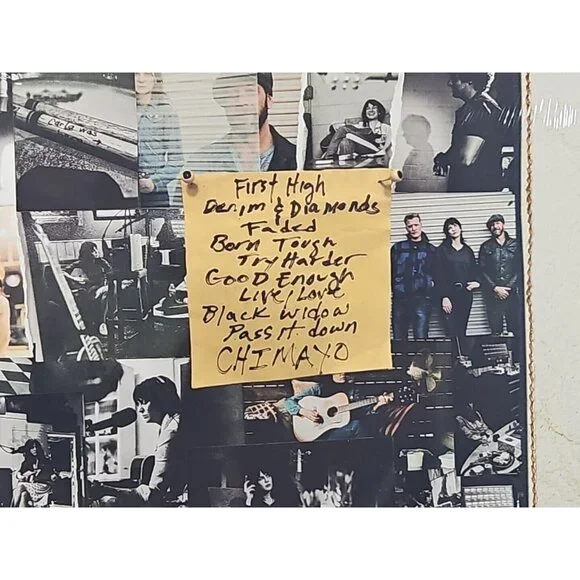 Carla was
First High
Denim & Diamonds
Faded
Born Tough
Try Harder
Good Enough
Live, Love
Black Widow
Pass It down
CHIMAYO